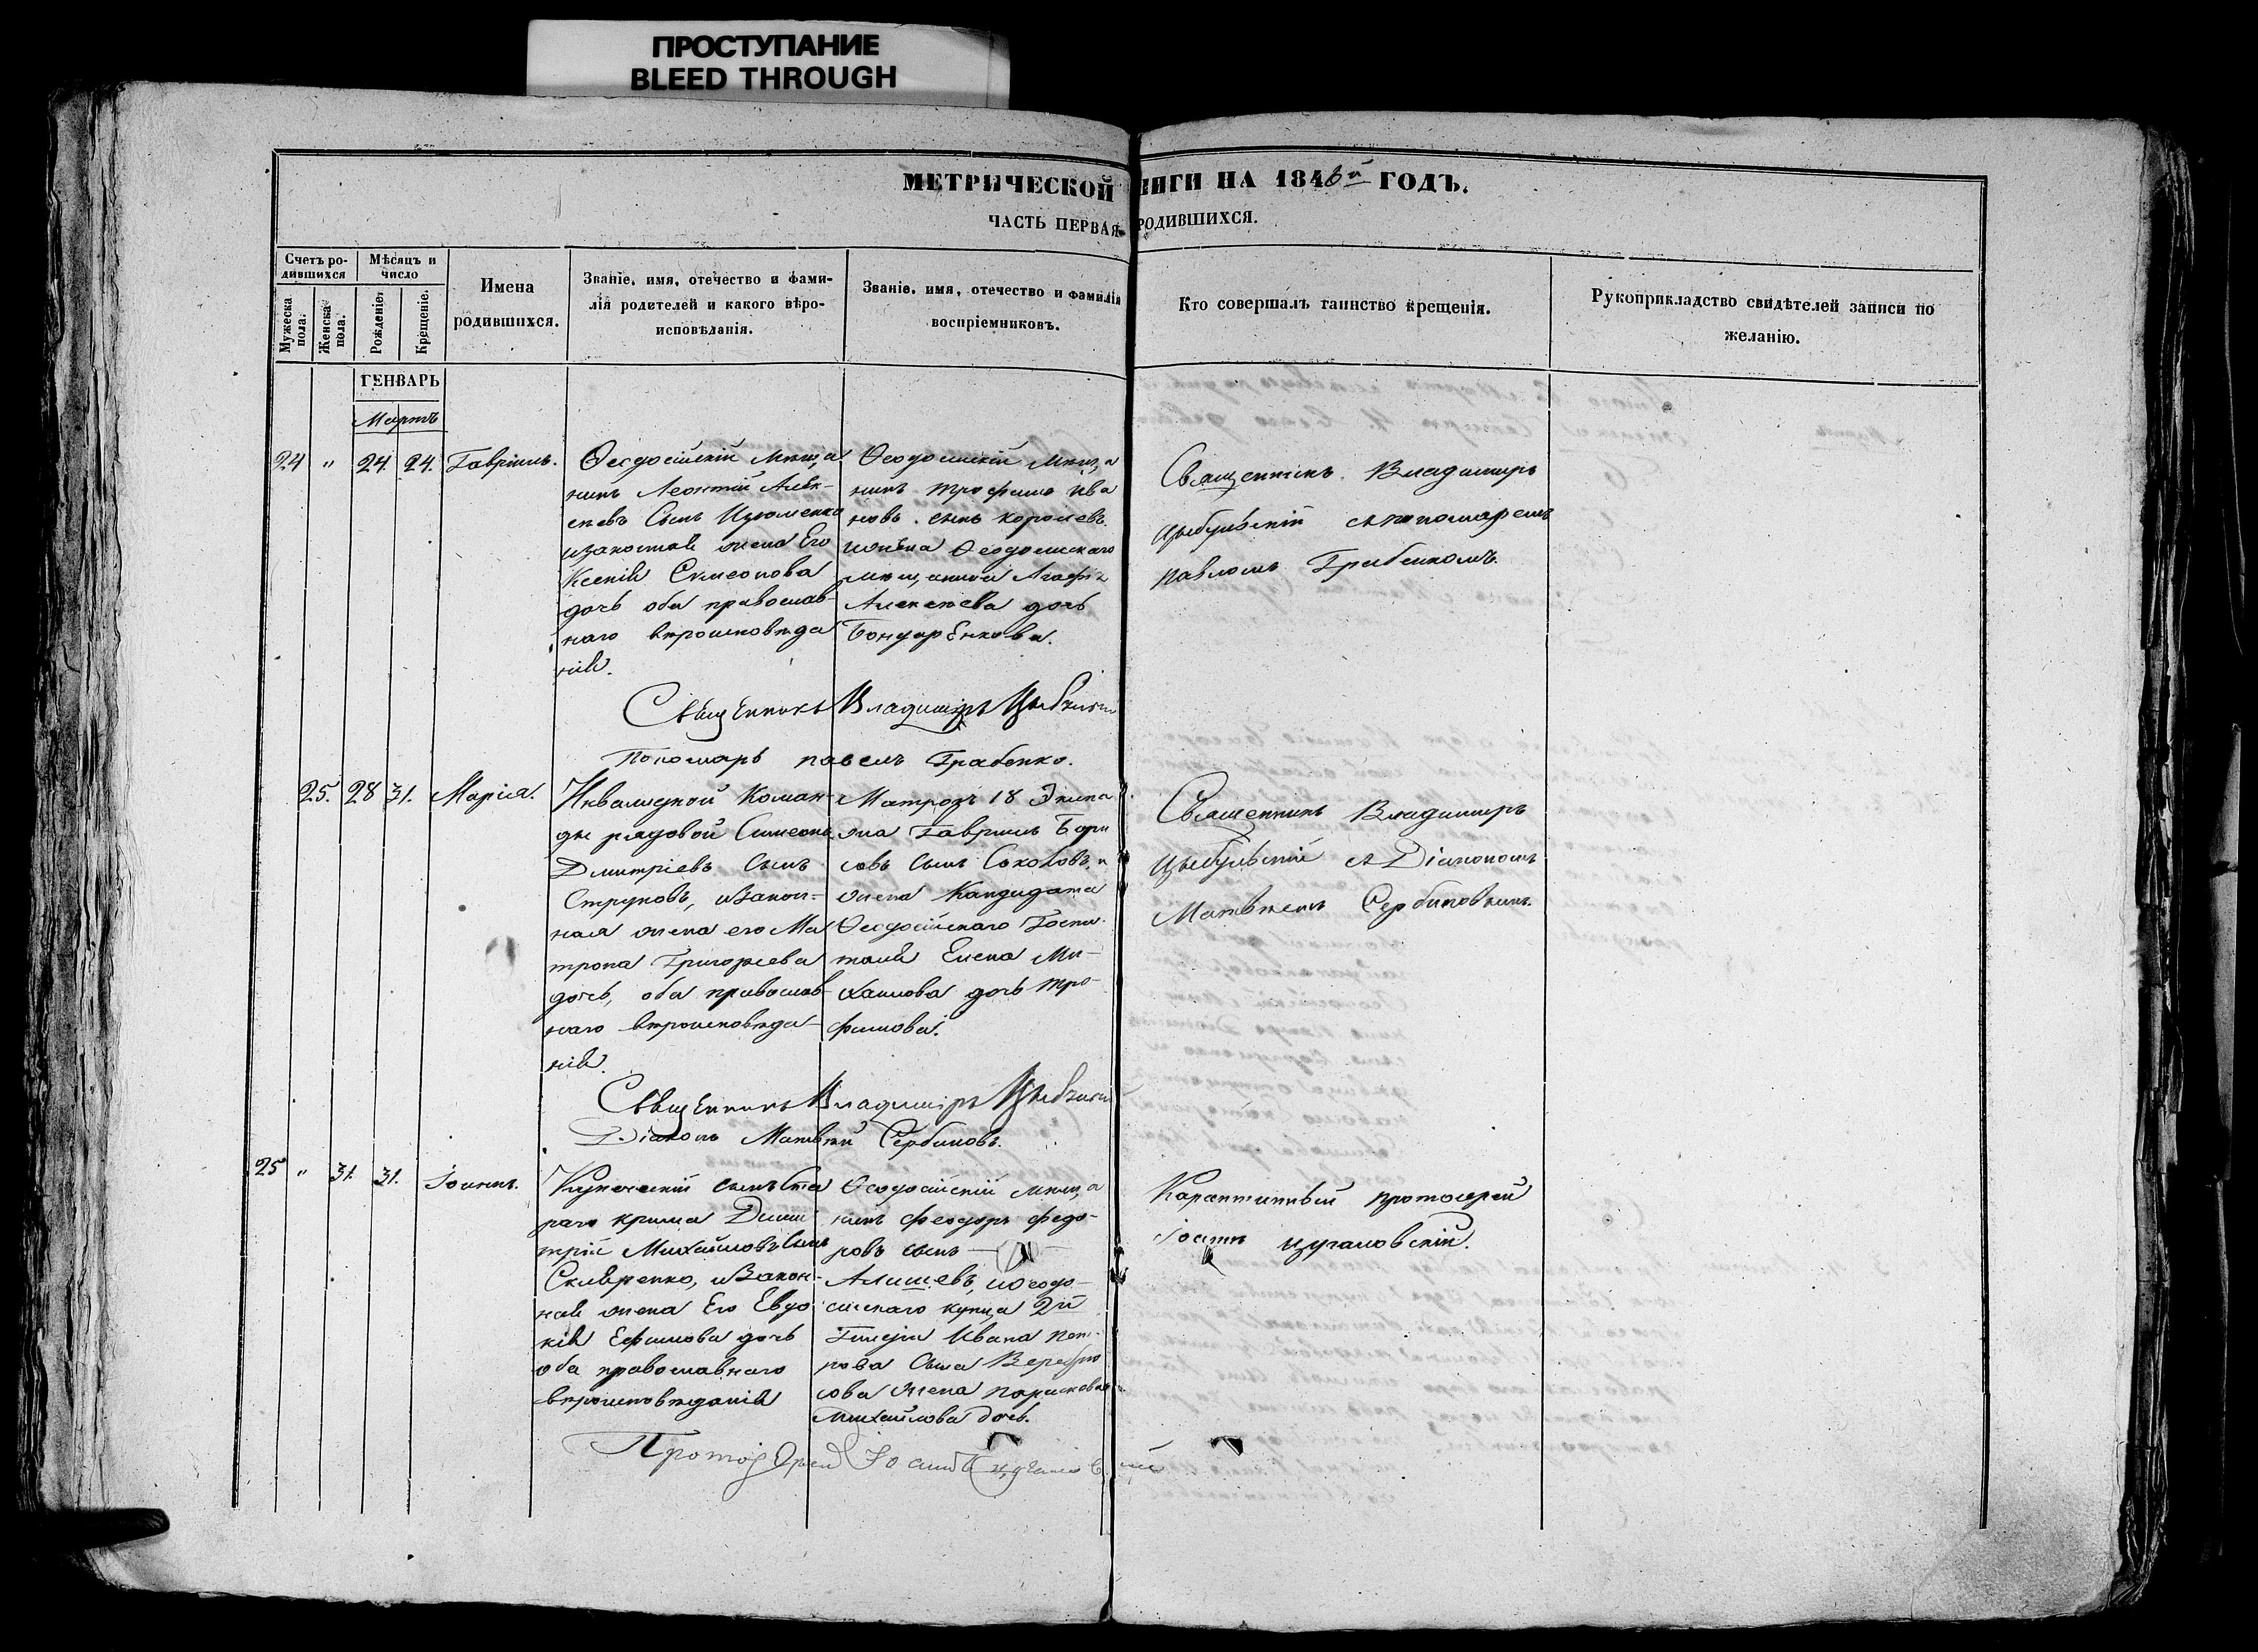 ПРОСТУПАНИЕ
BLEED THROUGH
МЕТРИЧЕСКОЙ НИГИ НА 1846й ГОДЪ.
ЧАСТЬ ПЕРВАЯ РОДИВШИХСЯ.
Счетъ ро-
дившихся
Мужеска пола.
Женска пола.
Мѣсяцъ и
число
Рожденіе.
Крещеніе.
Имена
родившихся.
Званіе, имя, отечество и фами-
лія родителей и какого вѣро-
исповѣданія.
Званіе, имя, отечество и фамилія
воспріемниковъ.
Кто совершалъ таинство крещенія.
Рукоприкладство свидѣтелей записи по
желанію.
ГЕНВАРЬ
Мартъ
24 " 24 24. Гавріилъ.
Ѳеодосійскій мѣща
нинъ Леонтій Алек-
сѣевъ Сынъ Изюменко
изаконная жена Его
Ксенія Симеонова
дочь оба православ-
наго вѣроисповѣда
нія.
Ѳеодосійскій мѣща
нинъ трофимъ Ива
новъ сынъ королевъ
Ѳеодосійскаго
мѣщанина Агафія
Алексѣева дочь
Бондаренкова.
Священникъ Владимиръ
Цыбульскій спономаремъ
павломъ Грабенкомъ.
Священникъ Владимиръ Цыбульскій
Пономарь павелъ Грабенко.
25. 28 31. Марія.
Инвалидной Коман-
ды рядовой Симеонъ
Дмитріевъ Сынъ
Струковъ, изакон-
ная жена его Ма
трона Григорьева
дочь, оба православ-
наго вѣроисповѣда-
нія.
Матрозъ 18 Экипа
жа Гавріилъ Бори
совъ Сынъ Соколовъ, и
жена Кандидата
Ѳеодосійскаго Госпи-
таля Елена Ми-
хаилова дочь тро-
фимова.
Священникъ Владимиръ
Цыбульскій съ Діакономъ
Матвѣемъ Сербиновымъ.
Священникъ Владимиръ Цыбульскій
Діаконъ Матвѣй Сербиновъ.
25 " 31. 31. Іоаннъ.
Купеческій сынъ Ста
раго крыма Дими
трій Михайловъ Сынъ
изакон-
ная жена Его Евдо
кія Ефимова дочь
оба православнаго
вѣроисповѣданія
Ѳеодосійскій мѣща
нинъ феодоръ федо-
ровъ сынъ
Алишевъ, иѲеодо-
сійскаго купца 2й
Гилдіи Ивана пет-
рова Сына
жена парасковья
михайлова дочь.
Карантинный протоіерей
Іоаннъ
Протоіерей Іоаннъ